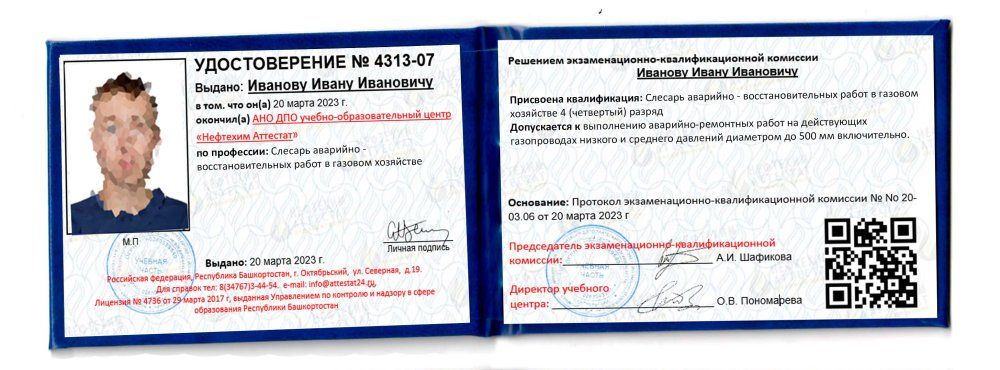 УДОСТОВЕРЕНИЕ № 4313-07
Выдано: Иванову Ивану Ивановичу
в том. что он(а) 20 марта 2023 г.
окончил(а) АНО ДПО учебно-образовательный центр
«Нефтехим Аттестат»
по профессии: Слесарь аварийно -
восстановительных работ в газовом хозяйстве
М.П
Личная подпись
УЧЕБНАЯ
ЧАСТЬ
Выдано: 20 марта 2023 г.
Российская федерация, Республика Башкортостан, г. Октябрьский, ул. Северная, д.19.
Для справок тел: 8(34767)3-44-54. e-mail: info@attestat24.ru,
Лицензия № 4736 от 29 марта 2017 г, выданная Управлением по контролю и надзору в сфере
образования Республики Башкортостан
Решением экзаменационно-квалификационной комиссии
Иванову Ивану Ивановичу
Присвоена квалификация: Слесарь аварийно - восстановительных работ в газовом
хозяйстве 4 (четвертый) разряд
Допускается к выполнению аварийно-ремонтных работ на действующих
газопроводах низкого и среднего давлений диаметром до 500 мм включительно.
Основание: Протокол экзаменационно-квалификационной комиссии № No 20-
03.06 от 20 марта 2023 г
Председатель экзаменационно-квалификационной
комиссии: А.И. Шафикова
УЧЕБНАЯ
ЧАСТЬ
Директор учебного
центра: О.В. Пономарева